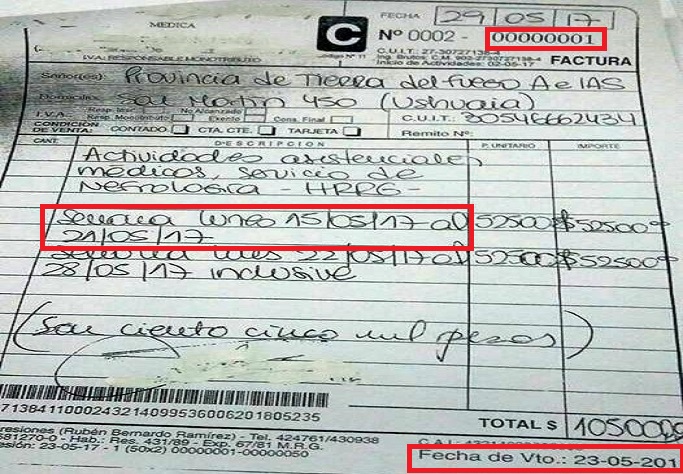 MEDICA
FECHA 29/05/17
C Nº 0002 - 00000001
Código Nº 11
C.U.I.T.: 27-30727138-4
Ing. Brutos: C.M. 902-27307138-4
I.V.A. RESPONSABLE MONOTRIBUTO
Inicio de Actividades: 02-05-17
FACTURA
Señor(es): Provincia de Tierra del Fuego A e IAS
Domicilio: San Martin 450 (Ushuaia)
I.V.A. Resp. Insc. No Alcanzado
Resp. Monotributo Exento Cons. Final
C.U.I.T.: 30546662434
CONDICIÓN DE VENTA: CONTADO CTA. CTE. TARJETA Remito Nº:
CANT. DESCRIPCION P. UNITARIO IMPORTE
Actividades asistenciales
médicas, servicio de
Nefrología - HRRG -
Semana lunes 15/05/17 al 52500 $52500
21/05/17
Semana lunes 22/05/17 al 52500 $52500
28/05/17 inclusive
(Son ciento cinco mil pesos)
7138411000243214099536006201805235
TOTAL $ 105000
resiones (Rubén Bernardo Ramírez) - Tel. 424761/430938
581270-0 - Hab.: Res. 431/89 - Exp. 67/81 M.R.G.
esión: 23-05-17 - 1 (50x2) 00000001-00000050
Fecha de Vto.: 23-05-201